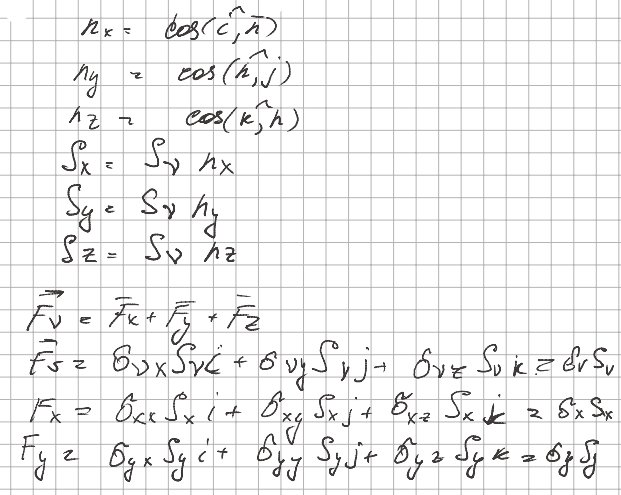 n_x = cos(i^,n̄)
n_y = cos(n^,j)
n_z = cos(k^,n)
S_x = S_ν n_x
S_y = S_ν n_y
S_z = S_ν n_z
F⃗_ν = F̄_x + F̄_y + F̄_z
F̄_s = σ_νx S_ν i + σ_νy S_ν j + σ_νz S_ν k = σ_ν S_ν
F_x = σ_xx S_x i + σ_xy S_x j + σ_xz S_x k = σ_x S_x
F_y = σ_yx S_y i + σ_yy S_y j + σ_yz S_y k = σ_y S_y